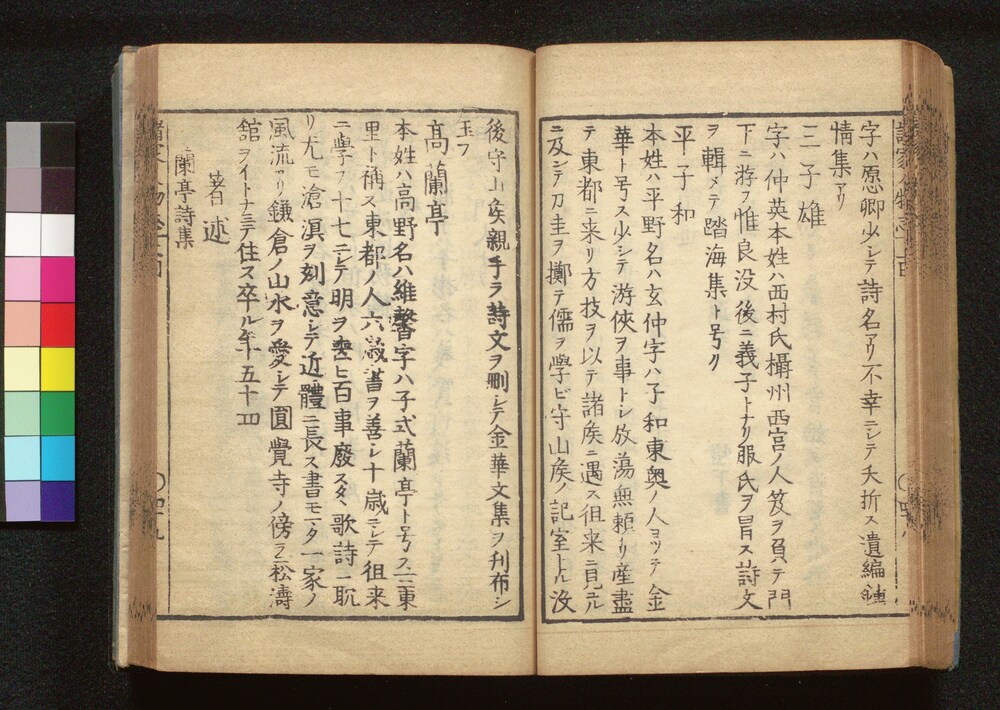 字ハ愿卿少シテ詩名アリ不幸ニシテ夭折ス遺編鍾
情集アリ
三子雄
字ハ仲英本姓ハ西村氏攝州西宮ノ人笈ヲ負テ門
下ニ游フ惟良没後ニ義子トナリ服氏ヲ冒ス詩文
ヲ輯メテ踏海集ト号ク
平子和
本姓ハ平野名ハ玄仲字ハ子和東奥ノ人ヨツテ金
華ト号ス少シテ游俠ヲ事トシ放蕩無頼ナリ産盡
テ東都ニ来リ方技ヲ以テ諸矦ニ遇ス徂来ニ見ユル
ニ及シテ刀圭ヲ擲テ儒ヲ學ビ守山矦ノ記室トル没
後守山矦親手ラ詩文ヲ刪シテ金華文集ヲ刋布シ
玉フ
髙蘭亭
本姓ハ高野名ハ維馨字ハ子式蘭亭ト号ス又東
里ト稱ス東都ノ人六歳書ヲ善シ十歳ニシテ徂来
ニ學フ十七ニシテ明ヲ喪ヒ百事廢ス夕歌詩ニ耽
リ尤モ滄溟ヲ刻意シテ近體ニ長ス書モマタ一家ノ
風流アリ鎌倉ノ山水ヲ愛シテ圓覺寺ノ傍ラニ松濤
舘ヲイトナミテ住ス卒ル年五十四
著述
蘭亭詩集
四十九